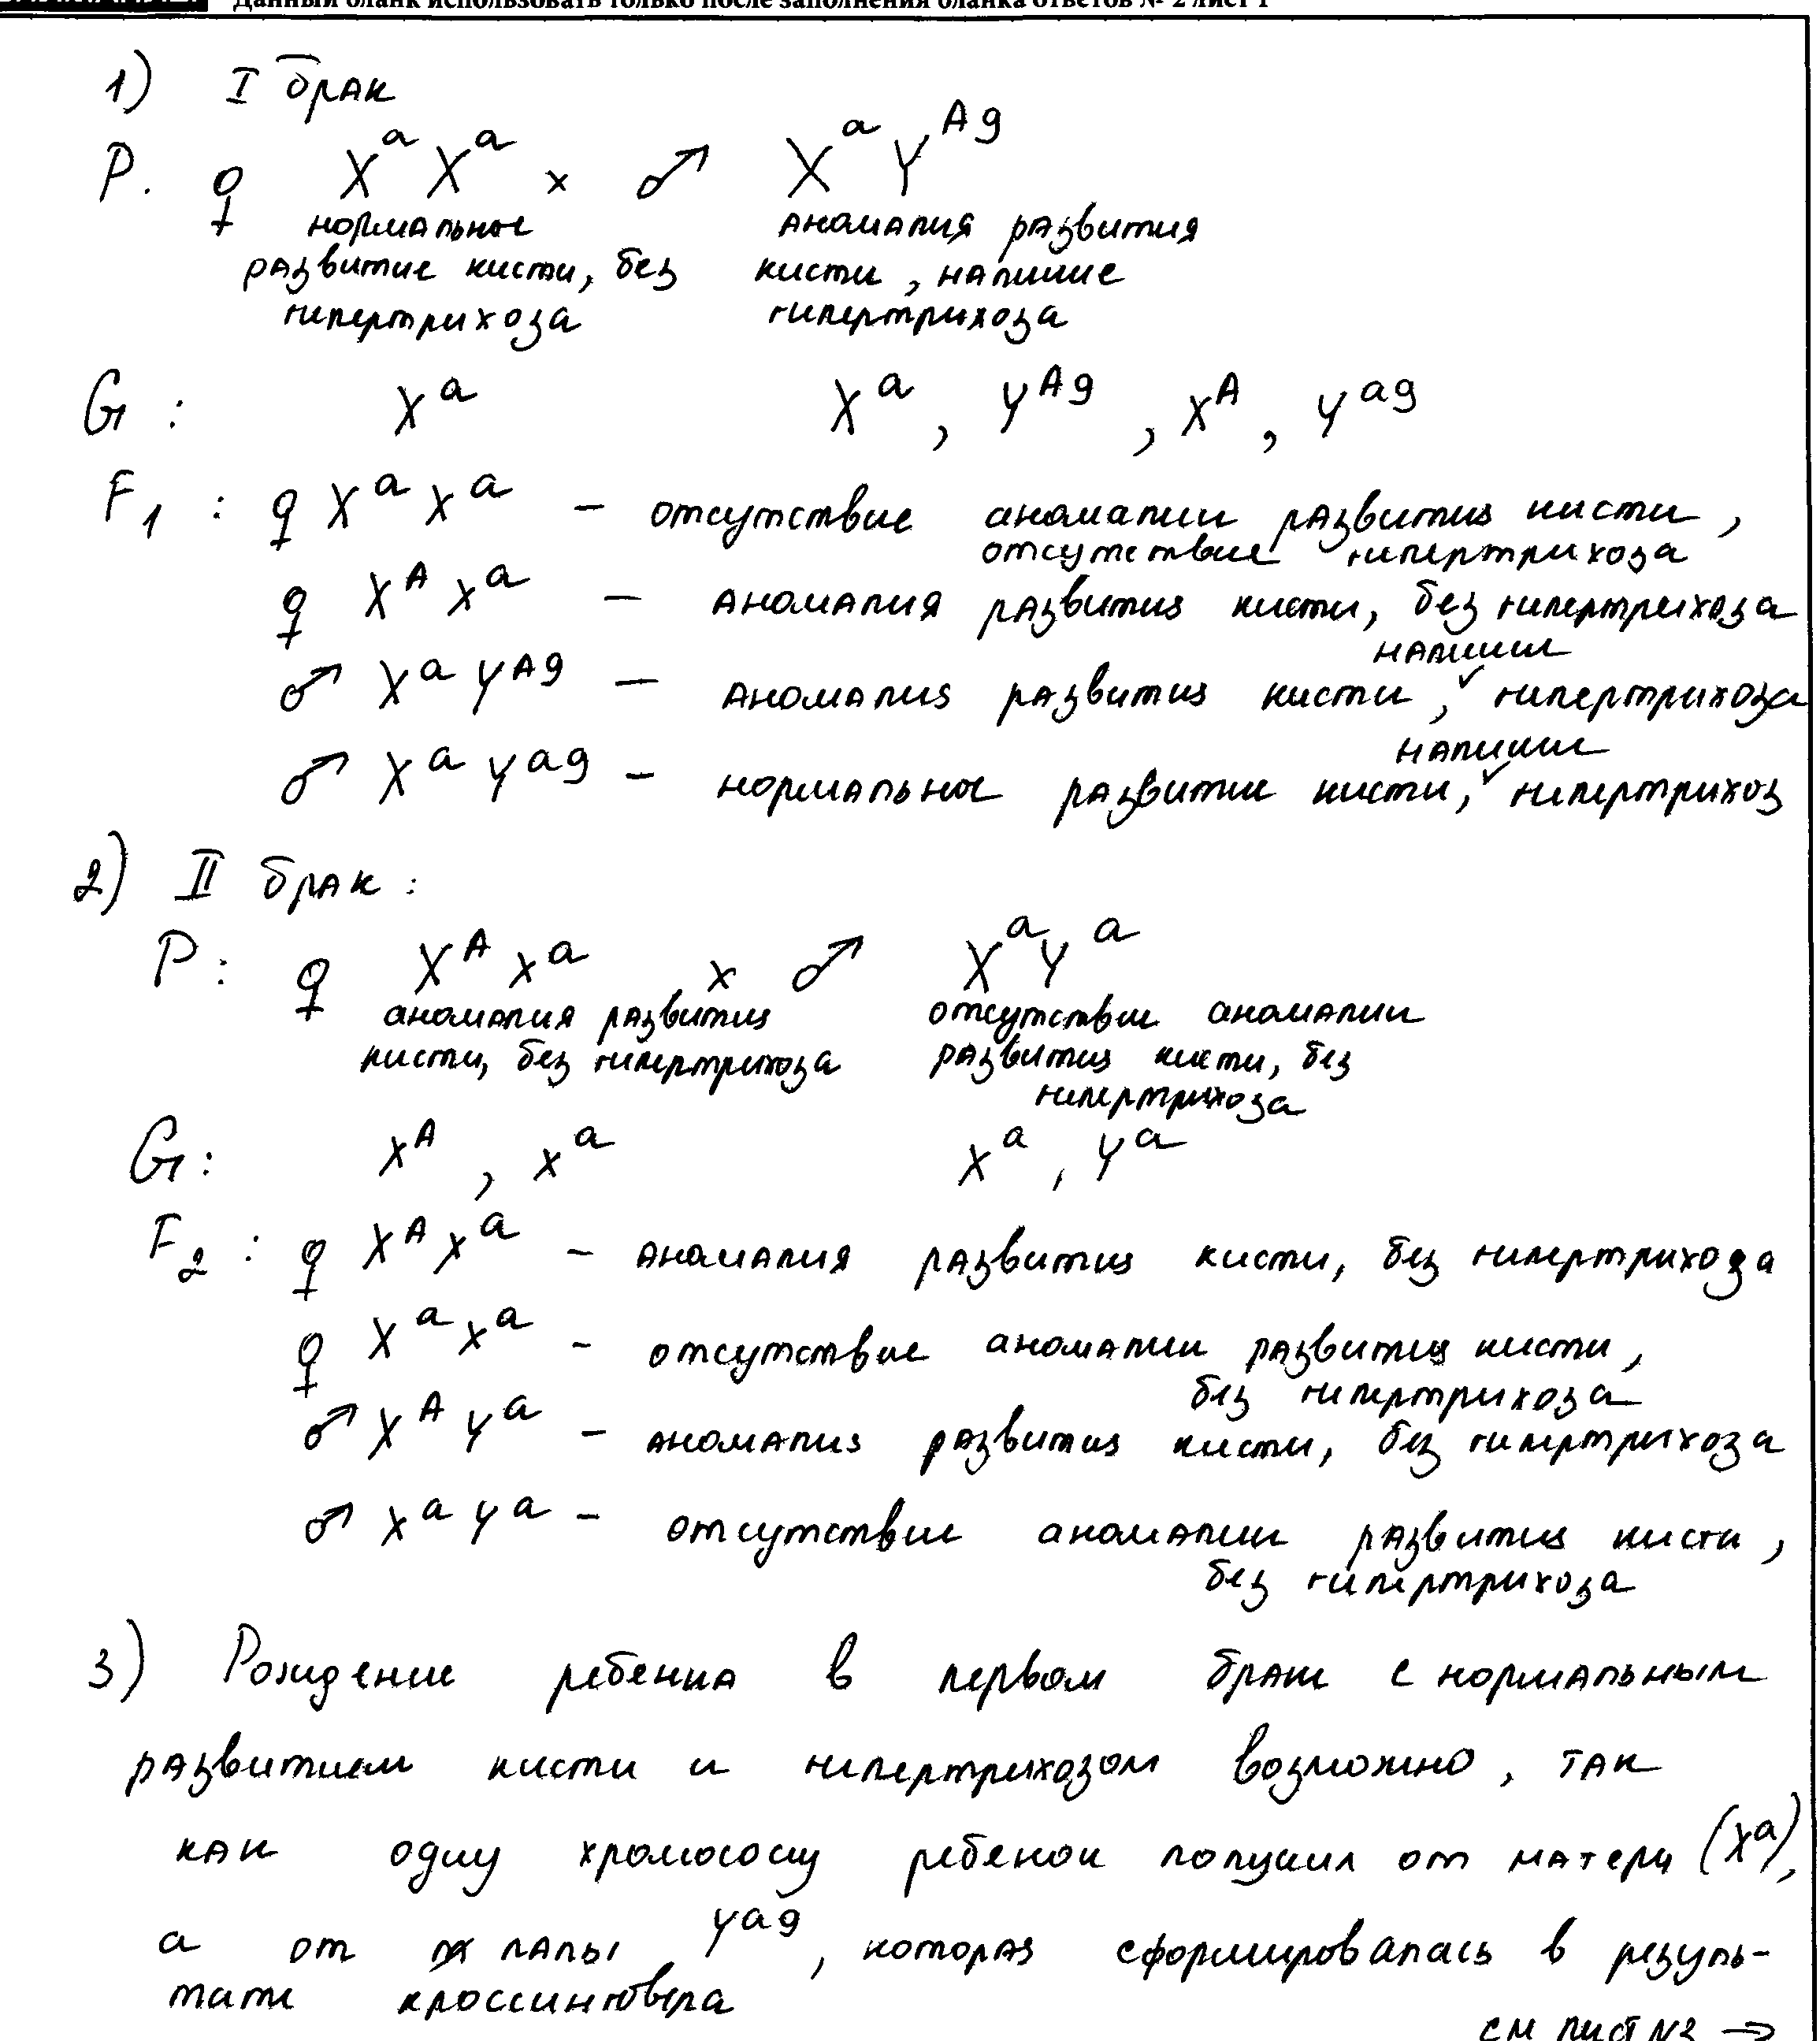 Данный бланк использовать только после заполнения бланка ответов № 2 лист 1
1) I брак
P. ♀ XᵃXᵃ × ♂ XᵃYᴬᵍ
нормальное аномалия развития
развитие кисти, без кисти, наличие
гипертрихоза гипертрихоза
G: Xᵃ Xᵃ, Yᴬᵍ, Xᴬ, Yᵃᵍ
F₁: ♀ XᵃXᵃ – отсутствие аномалии развития кисти,
отсутствие гипертрихоза
♀ XᴬXᵃ – аномалия развития кисти, без гипертрихоза
наличие
♂ XᵃYᴬᵍ – аномалия развития кисти, ✓ гипертрихоза
наличие
♂ XᵃYᵃᵍ – нормальное развитие кисти, ✓ гипертрихоз
2) II брак:
P: ♀ XᴬXᵃ × ♂ XᵃYᵃ
аномалия развития отсутствие аномалии
кисти, без гипертрихоза развития кисти, без
гипертрихоза
G: Xᴬ, Xᵃ Xᵃ, Yᵃ
F₂: ♀ XᴬXᵃ – аномалия развития кисти, без гипертрихоза
♀ XᵃXᵃ – отсутствие аномалии развития кисти,
без гипертрихоза
♂ XᴬYᵃ – аномалия развития кисти, без гипертрихоза
♂ XᵃYᵃ – отсутствие аномалии развития кисти,
без гипертрихоза
3) Рождение ребенка в первом браке с нормальным
развитием кисти и гипертрихозом возможно, так
как одну хромосому ребенок получил от матери (Xᵃ),
а от папы Yᵃᵍ, которая сформировалась в резуль-
тате кроссинговера
см лист №2 →